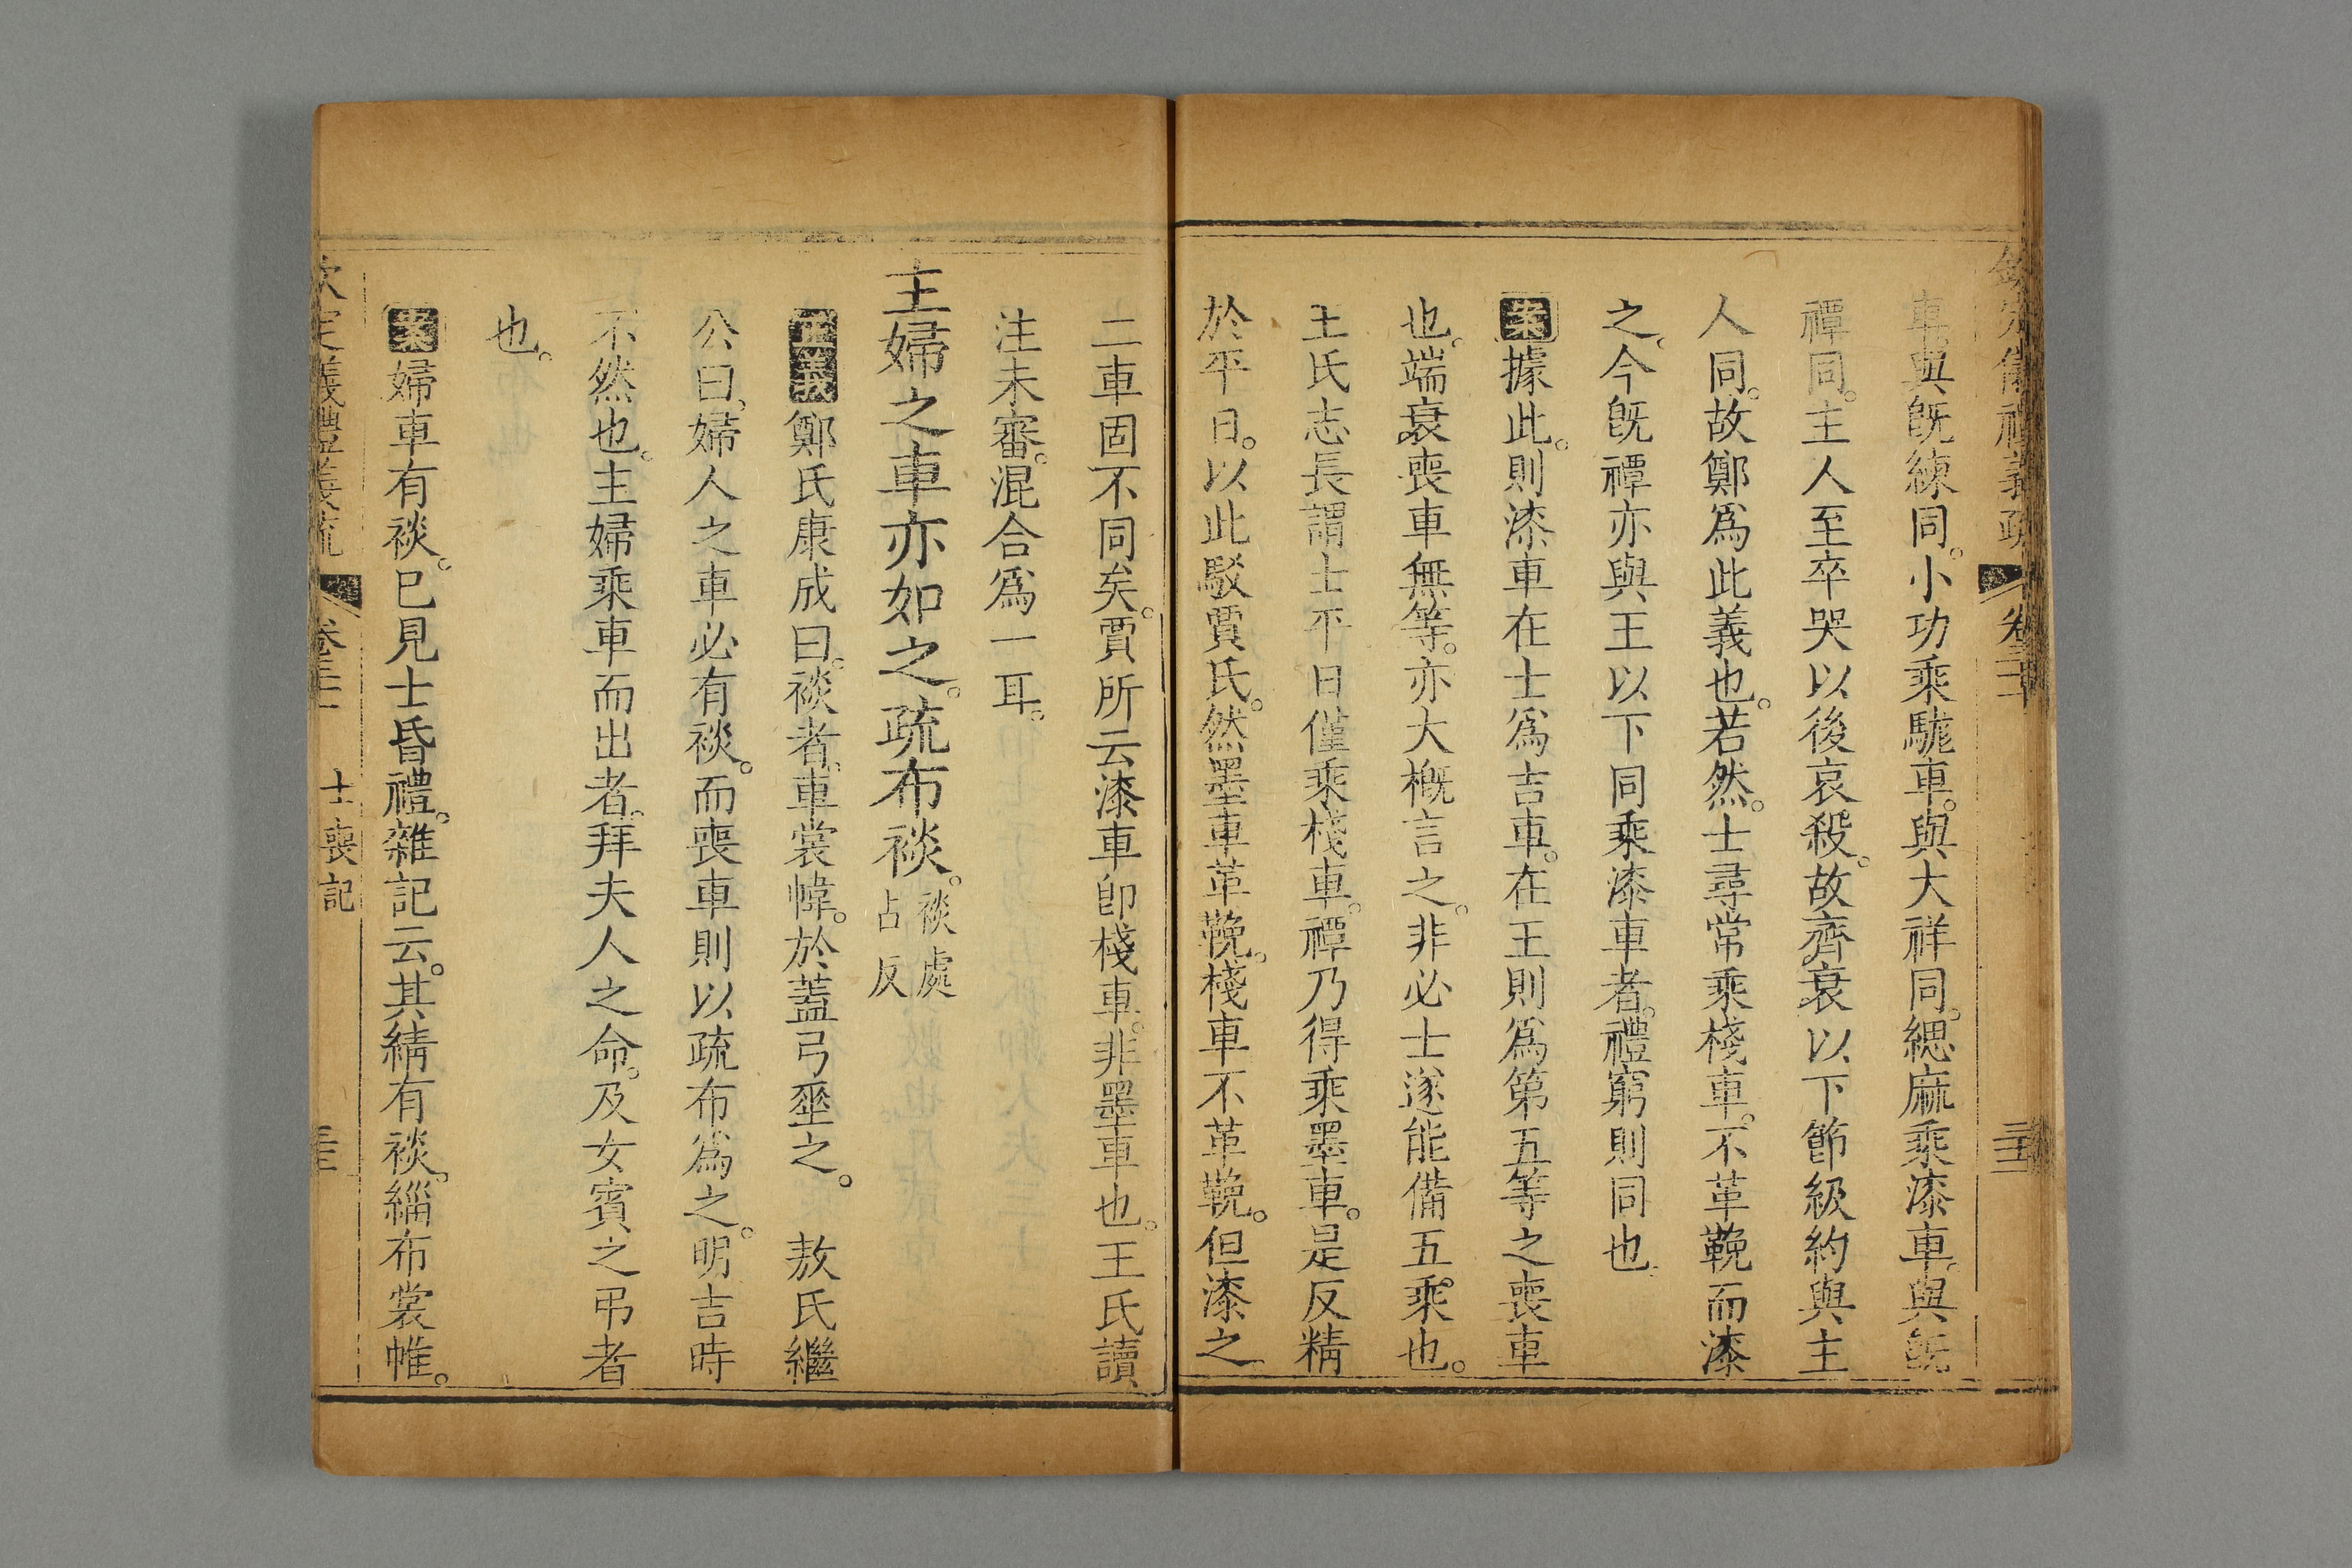 車與既練同。小功乘駹車。與大祥同。緦麻乘漆車。與既
禫同。主人至卒哭以後哀殺。故齊衰以下節級約與主
人同。故鄭爲此義也。若然。士尋常乘棧車。不革鞔而漆
之。今旣禫亦與王以下同乘漆車者。禮窮則同也
案據此。則漆車在士爲吉車。在王則爲第五等之喪車
也。端衰喪車無等。亦大槪言之。非必士遂能備五乘也。
王氏志長謂士平日僅乘棧車。禫乃得乘墨車。是反精
於平日。以此駁賈氏。然墨車革鞔。棧車不革鞔。但漆之
二車固不同矣。賈所云漆車卽棧車。非墨車也。王氏讀
注未審。混合爲一耳。
主婦之車亦如之。疏布裧。裧處占反
正義鄭氏康成曰。裧者。車裳幃。於蓋弓垂之。 敖氏繼
公曰。婦人之車必有裧。而喪車則以疏布爲之。明吉時
不然也。主婦乘車而出者。拜夫人之命。及女賓之弔者
也。
案婦車有裧。已見士昏禮。雜記云。其綪有裧。緇布裳帷。
欽定義禮義疏 卷三十一 士喪記